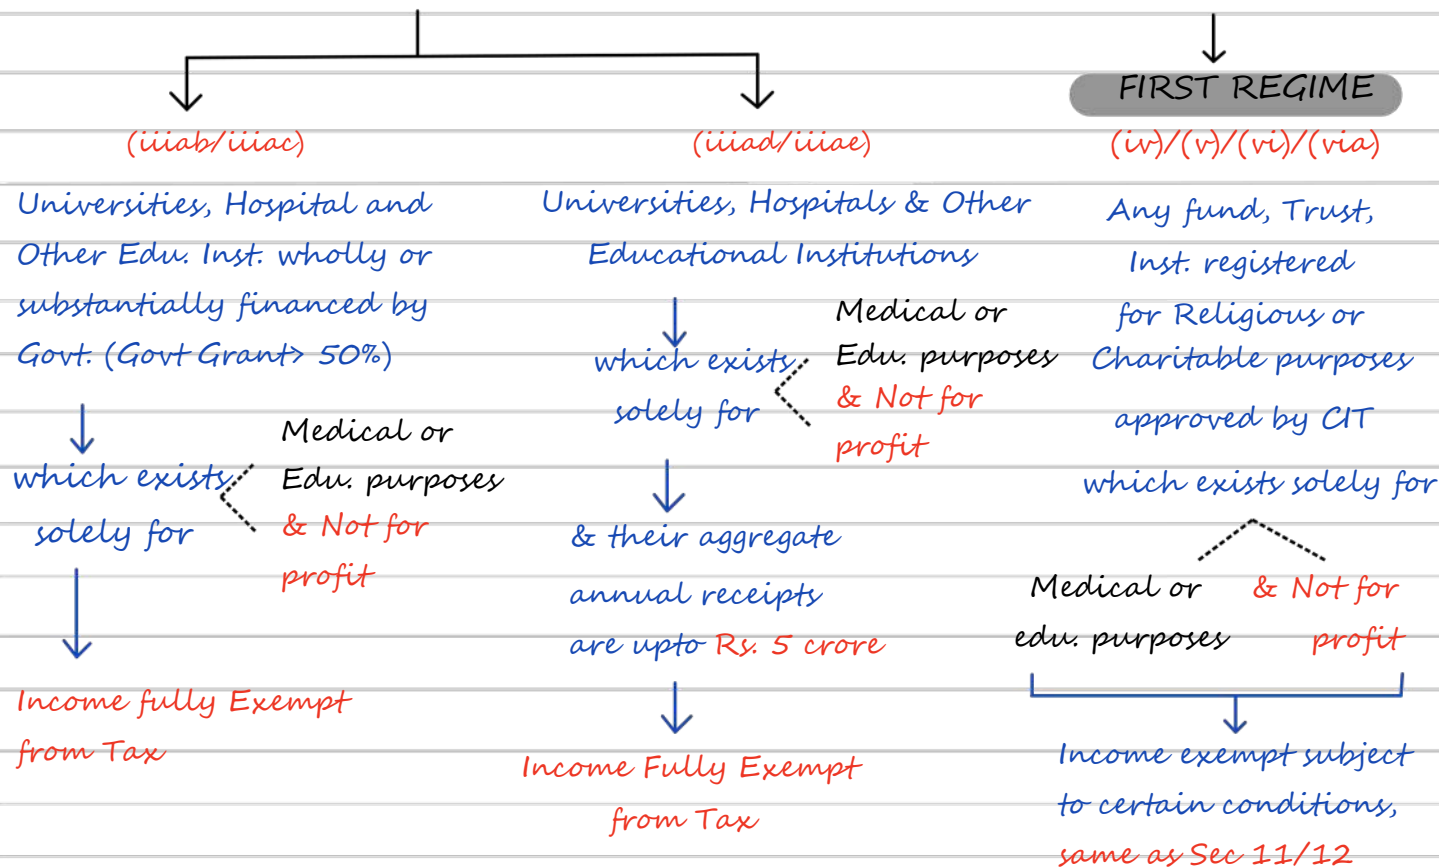 (iiiab/iiiac)
Universities, Hospital and
Other Edu. Inst. wholly or
substantially financed by
Govt. (Govt Grant> 50%)
which exists
solely for
Medical or
Edu. purposes
& Not for
profit
Income fully Exempt
from Tax
(iiiad/iiiae)
Universities, Hospitals & Other
Educational Institutions
which exists
solely for
Medical or
Edu. purposes
& Not for
profit
& their aggregate
annual receipts
are upto Rs. 5 crore
Income Fully Exempt
from Tax
FIRST REGIME
(iv)/(v)/(vi)/(via)
Any fund, Trust,
Inst. registered
for Religious or
Charitable purposes
approved by CIT
which exists solely for
Medical or
edu. purposes
& Not for
profit
Income exempt subject
to certain conditions,
same as Sec 11/12